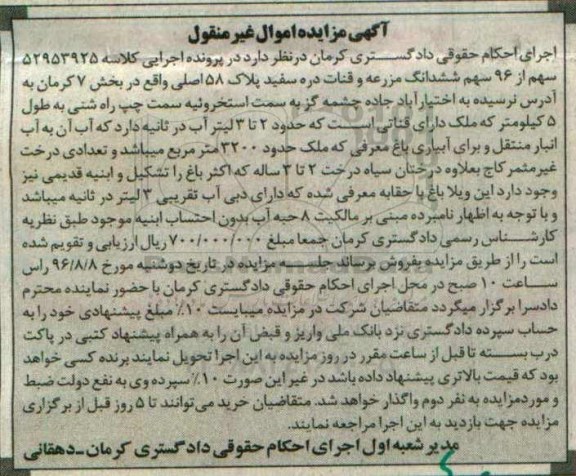 آگهی مزایده اموال غیر منقول
اجرای احکام حقوقی دادگستری کرمان در نظر دارد در پرونده اجرایی کلاسه ۵۲۹۵۳۹۲۵
سهم از ۹۶ سهم ششدانگ مزرعه و قنات دره سفید پلاک ۵۸ اصلی واقع در بخش ۷ کرمان به
آدرس نرسیده به اختیارآباد جاده چشمه گز به سمت استخروئیه سمت چپ راه شنی به طول
۵ کیلومتر که ملک دارای قناتی است که حدود ۲ تا ۳ لیتر آب در ثانیه دارد که آب آن به آب
انبار منتقل و برای آبیاری باغ معرفی که ملک حدود ۳۲۰۰ متر مربع میباشد و تعدادی درخت
غیرمثمر کاج بعلاوه درختان سیاه درخت ۲ تا ۳ ساله که اکثر باغ را تشکیل و ابنیه قدیمی نیز
وجود دارد این ویلا باغ با حقابه معرفی شده که دارای دبی آب تقریبی ۳ لیتر در ثانیه میباشد
و با توجه به اظهار نامبرده مبنی بر مالکیت ۸ حبه آب بدون احتساب ابنیه موجود طبق نظریه
کارشناس رسمی دادگستری کرمان جمعا مبلغ ۷۰۰/۰۰۰/۰۰۰ ریال ارزیابی و تقویم شده
است را از طریق مزایده بفروش برساند جلسه مزایده در تاریخ دوشنبه مورخ ۹۶/۸/۸ راس
ساعت ۱۰ صبح در محل اجرای احکام حقوقی دادگستری کرمان با حضور نماینده محترم
دادسرا برگزار میگردد متقاضیان شرکت در مزایده میبایست ۱۰٪ مبلغ پیشنهادی خود را به
حساب سپرده دادگستری نزد بانک ملی واریز و قبض آن را به همراه پیشنهاد کتبی در پاکت
درب بسته تا قبل از ساعت مقرر در روز مزایده به این اجرا تحویل نمایند برنده کسی خواهد
بود که قیمت بالاتری پیشنهاد داده باشد در غیر این صورت ۱۰٪ سپرده وی به نفع دولت ضبط
و مورد مزایده به نفر دوم واگذار خواهد شد. متقاضیان خرید می‌توانند تا ۵ روز قبل از برگزاری
مزایده جهت بازدید به این اجرا مراجعه نمایند.
مدیر شعبه اول اجرای احکام حقوقی دادگستری کرمان - دهقانی